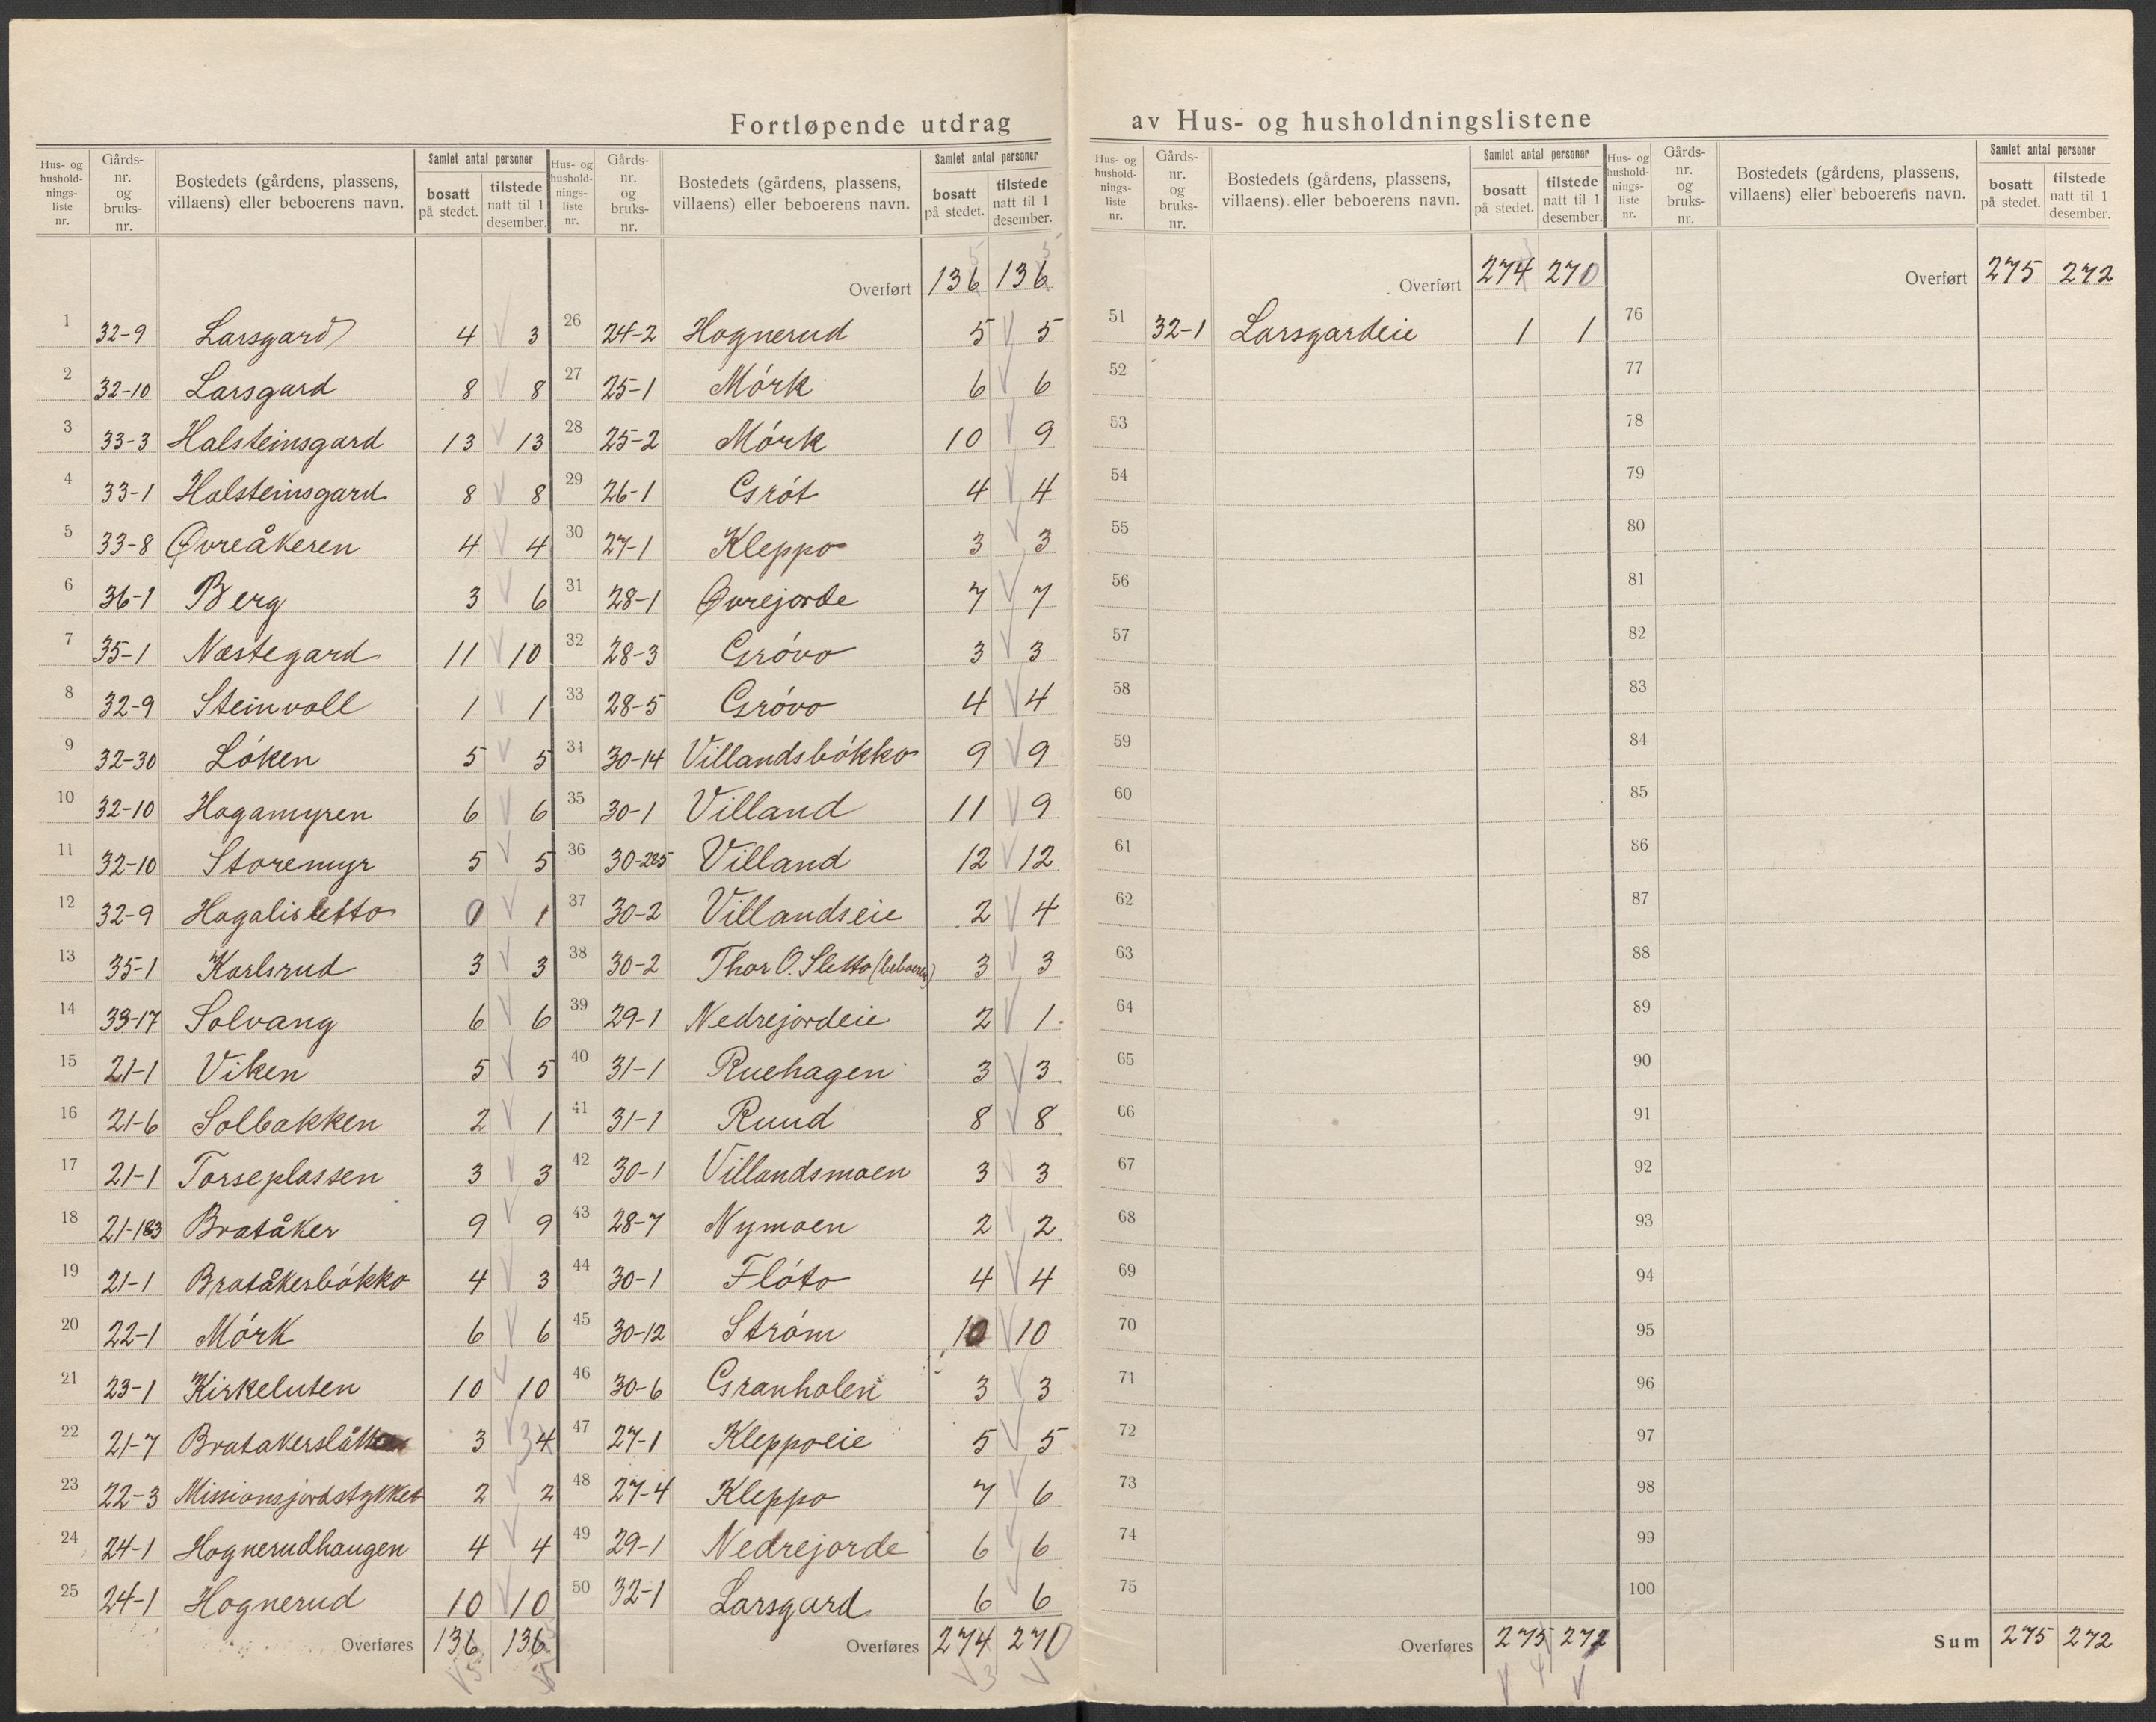 Fortløpende utdrag av Hus- og husholdningslistene
Hus- og husholdnings-liste nr. | Gårds-nr. og bruks-nr. | Bostedets (gårdens, plassens, villaens) eller beboerens navn. | Samlet antal personer bosatt på stedet. | tilstede natt til 1 desember.
1 32-9 Larsgard 4 3
2 32-10 Larsgard 8 8
3 33-3 Halsteinsgard 13 13
4 33-1 Halsteinsgard 8 8
5 33-8 Øvreåkeren 4 4
6 36-1 Berg 3 6
7 35-1 Nestegard 11 10
8 32-9 Steinvoll 1 1
9 32-30 Lóken 5 5
10 32-10 Hagamyren 6 6
11 32-10 Storemyr 5 5
12 32-9 Hagalisletto 0 1
13 35-1 Karlsrud 3 3
14 33-17 Solvang 6 6
15 21-1 Viken 5 5
16 21-6 Solbakken 2 1
17 21-1 Torseplassen 3 3
18 21-1&3 Bratåker 9 9
19 21-1 Bratåkerbókko 4 3
20 22-1 Mórk 6 6
21 23-1 Kirkeluten 10 10
22 21-7 3 4
23 22-3 Missionsjordstykket 2 2
24 24-1 Hognerudhaugen 4 4
25 24-1 Hognerud 10 10
Overføres 136 136
Hus- og husholdnings-liste nr. | Gårds-nr. og bruks-nr. | Bostedets (gårdens, plassens, villaens) eller beboerens navn. | Samlet antal personer bosatt på stedet. | tilstede natt til 1 desember.
Overført 136 136
26 24-2 Hognerud 5 5
27 25-1 Mórk 6 6
28 25-2 Mórk 10 9
29 26-1 Grót 4 4
30 27-1 Kleppo 3 3
31 28-1 Øvrejorde 7 7
32 28-3 Gróvo 3 3
33 28-5 Gróvo 4 4
34 30-14 Villandsbókko 9 9
35 30-1 Villand 11 9
36 30-2&5 Villand 12 12
37 30-2 Villandseie 2 4
38 30-2 Thor O. Sletto (beboeren) 3 3
39 29-1 Nedrejordeie 2 1
40 31-1 Ruehagen 3 3
41 31-1 Ruud 8 8
42 30-1 Villandsmoen 3 3
43 28-7 Nymoen 2 2
44 30-1 Flóto 4 4
45 30-12 Stróm 10 10
46 30-6 Granholen 3 3
47 27-1 Kleppoeie 5 5
48 27-4 Kleppo 7 6
49 29-1 Nedrejorde 6 6
50 32-1 Larsgard 6 6
Overføres 274 270
Hus- og husholdnings-liste nr. | Gårds-nr. og bruks-nr. | Bostedets (gårdens, plassens, villaens) eller beboerens navn. | Samlet antal personer bosatt på stedet. | tilstede natt til 1 desember.
Overført 274 270
51 32-1 Larsgardeie 1 1
52
53
54
55
56
57
58
59
60
61
62
63
64
65
66
67
68
69
70
71
72
73
74
75
Overføres 275 272
Hus- og husholdnings-liste nr. | Gårds-nr. og bruks-nr. | Bostedets (gårdens, plassens, villaens) eller beboerens navn. | Samlet antal personer bosatt på stedet. | tilstede natt til 1 desember.
Overført 275 272
76
77
78
79
80
81
82
83
84
85
86
87
88
89
90
91
92
93
94
95
96
97
98
99
100
Sum 275 272